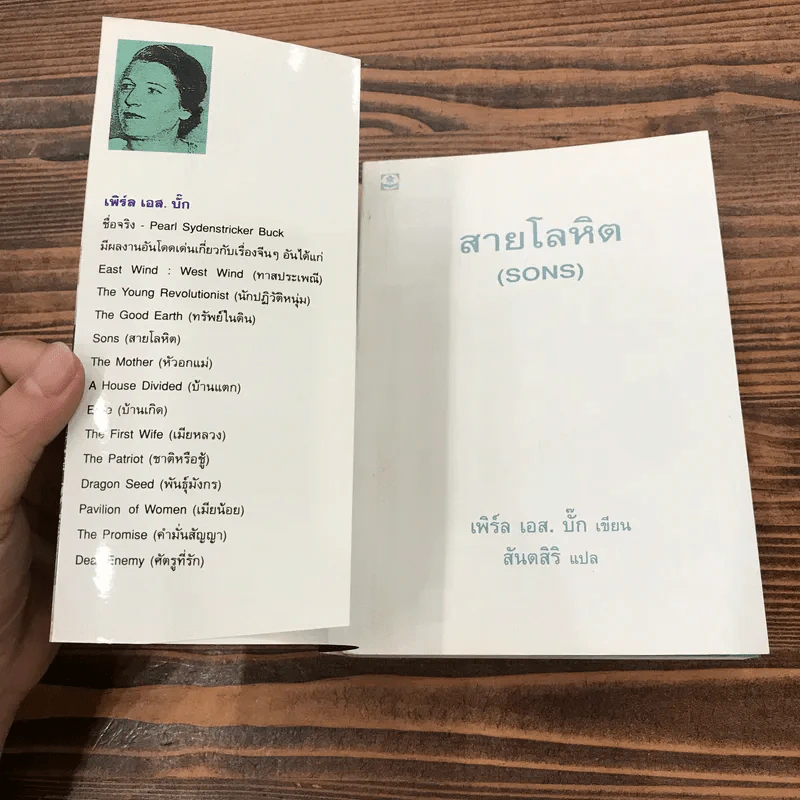 เพิร์ล เอส. บั๊ก
ชื่อจริง - Pearl Sydenstricker Buck
มีผลงานอันโดดเด่นเกี่ยวกับเรื่องจีนๆ อันได้แก่
East Wind : West Wind (ทาสประเพณี)
The Young Revolutionist (นักปฏิวัติหนุ่ม)
The Good Earth (ทรัพย์ในดิน)
Sons (สายโลหิต)
The Mother (หัวอกแม่)
A House Divided (บ้านแตก)
(บ้านเกิด)
The First Wife (เมียหลวง)
The Patriot (ชาติหรือชู้)
Dragon Seed (พันธุ์มังกร)
Pavilion of Women (เมียน้อย)
The Promise (คำมั่นสัญญา)
Enemy (ศัตรูที่รัก)
สายโลหิต
(SONS)
เพิร์ล เอส. บั๊ก เขียน
สันตสิริ แปล